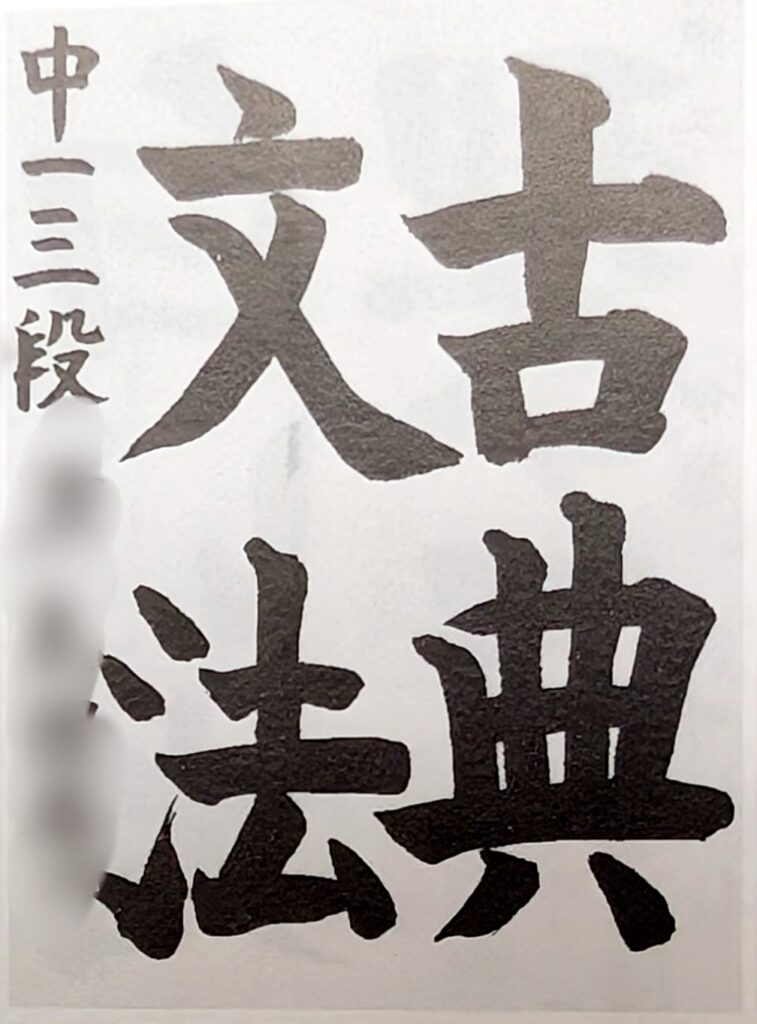 古典
文法
中一三段